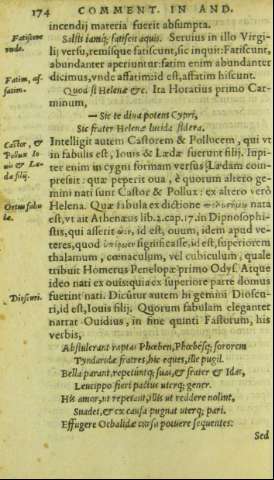 174 COMMENT. IN AND.
incendij materia fuerit absumpta.
Fatiscere unde.
Salsis iamq́; fatiscit aquis. Seruius in illo Virgi-
lij versu, remisque fatiscunt, sic inquit: Fatiscunt,
abundanter aperiuntur: fatim enim abundanter
Fatim, af-
fatim.
dicimus, vnde affatim: id est, affatim hiscunt.
Quod si Helenæ &c. Ita Horatius primo Car-
minum,
— Sic te diua potens Cypri,
Sic fratres Helenæ lucida sidera.
Castor, &
Pollux Io-
uis & Le-
dæ filij.
Intelligit autem Castorem & Pollucem, qui vt
in fabulis est, Iouis & Lædæ fuerunt filij. Iupi-
ter enim in cygni formam versus Lædam com-
pressit: quæ peperit oua, è quorum altero ge-
mini nati sunt Castor & Pollux: ex altero verò
Helena. Quæ fabula ex dictione nata
est, vt ait Athenæus lib. 2. cap. 17. in Dipnosophi-
stis, qui asserit id est, ouum, idem apud ve-
teres, quod significasse, id est, superiorem
thalamum, cœnaculum, vel cubiculum, quale
tribuit Homerus Penelopæ primo Odyss. Atque
ideo nati ex ouis: quia ex superiore parte domus
Dioscuri.
fuerint nati. Dicũtur autem hi gemini Dioscu-
ri, id est, Iouis filij. Quorum fabulam eleganter
narrat Ouidius, in fine quinti Fastorum, his
verbis,
Abstulerant raptas Phœben, Phœbesq́; sororem
Tyndaridæ fratres, hic eques, ille pugil.
Bella parant, repetuntq́; suas, & frater & Idas,
Leucippo fieri pactus uterq; gener.
His amor, ut repetant, illis ut reddere nolint,
Suadet, & ex causa pugnat uterq; pari.
Effugere Oebalidæ cursu potuere sequentes:
Sed